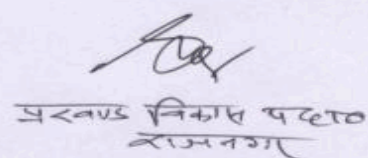 प्रखण्ड विकास पदा०
राजनगर